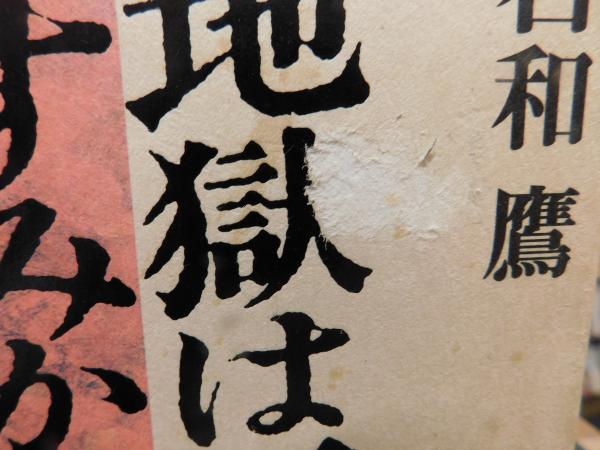 和 鷹
地獄は
すみか